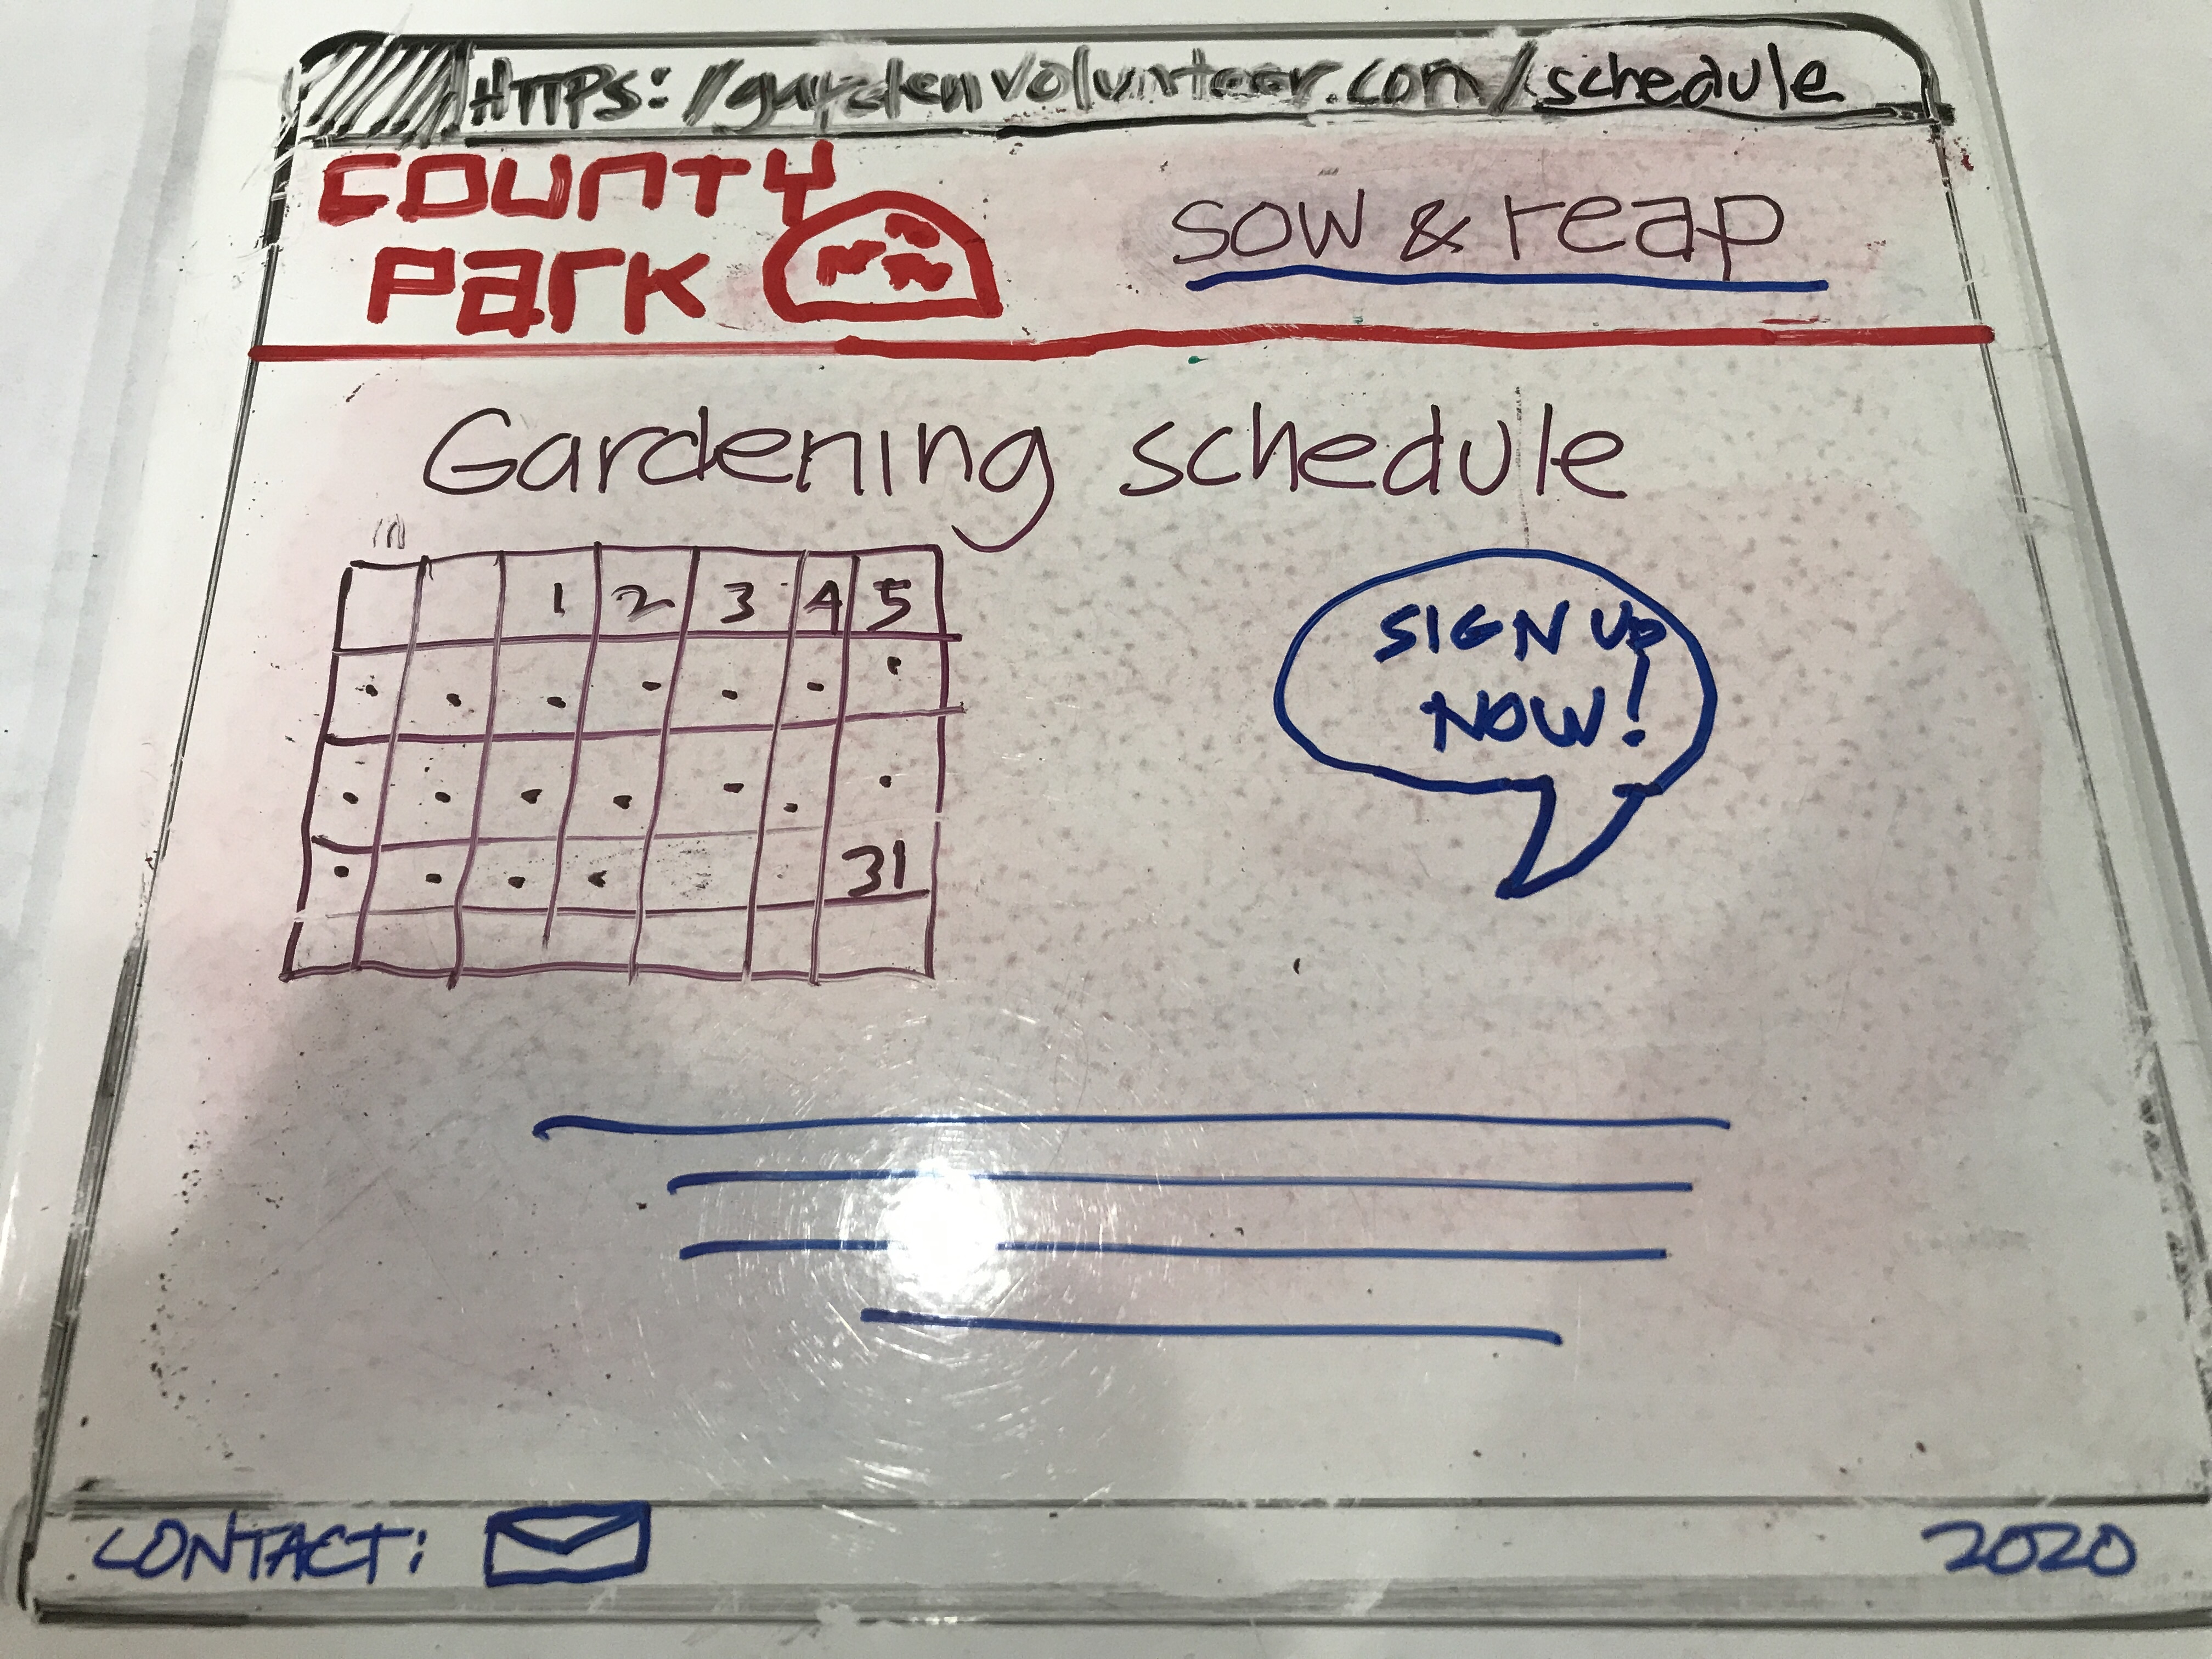 HTTPS://gardenvolunteer.com/schedule
COUNTY
PARK
sow & reap
Gardening schedule
1 2 3 4 5
31
SIGN UP
NOW!
CONTACT:
2020